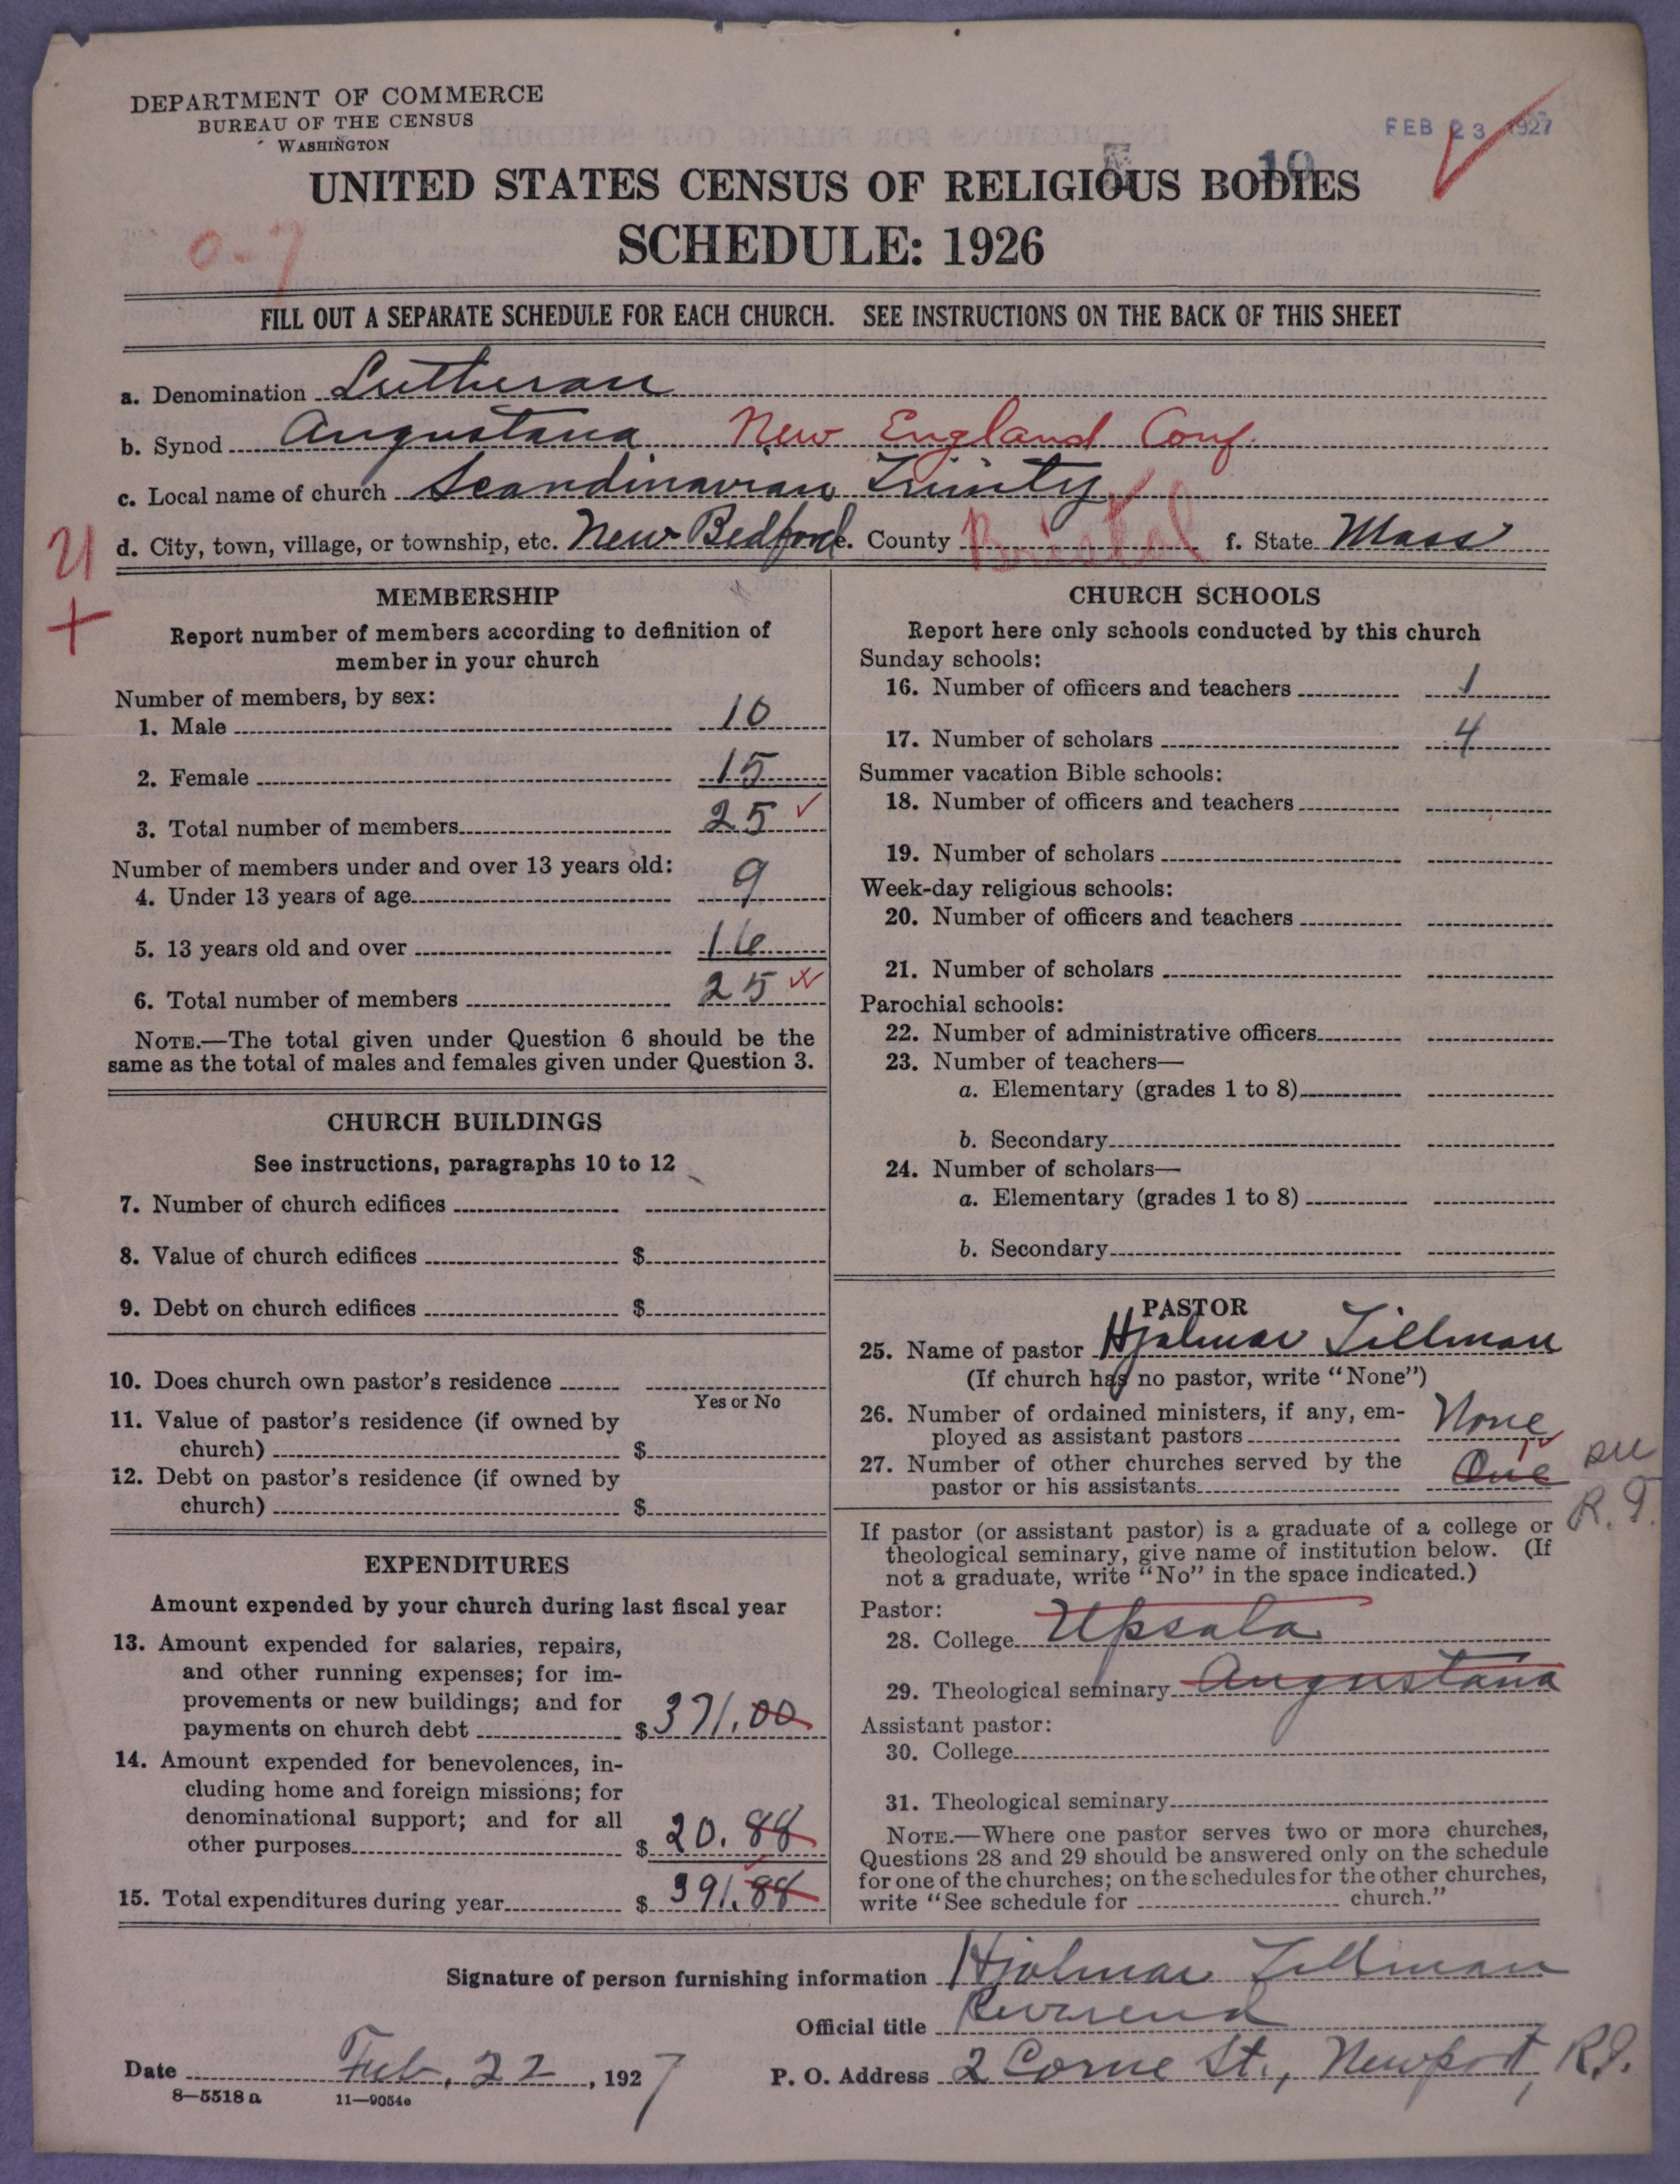 DEPARTMENT OF COMMERCE
BUREAU OF THE CENSUS
WASHINGTON
FEB 23 1927
10
UNITED STATES CENSUS OF RELIGIOUS BODIES
0-7
SCHEDULE: 1926
FILL OUT A SEPARATE SCHEDULE FOR EACH CHURCH. SEE INSTRUCTIONS ON THE BACK OF THIS SHEET
a. Denomination Lutheran
b. Synod Augustana New England Conf.
c. Local name of church Scandinavian Trinity
d. City, town, village, or township, etc. New Bedford e. County Bristol f. State Mass
MEMBERSHIP
Report number of members according to definition of
member in your church
Number of members, by sex:
1. Male 10
2. Female 15
3. Total number of members 25
Number of members under and over 13 years old:
4. Under 13 years of age 9
5. 13 years old and over 16
6. Total number of members 25
NOTE.—The total given under Question 6 should be the
same as the total of males and females given under Question 3.
CHURCH BUILDINGS
See instructions, paragraphs 10 to 12
7. Number of church edifices
8. Value of church edifices $
9. Debt on church edifices $
10. Does church own pastor's residence
Yes or No
11. Value of pastor's residence (if owned by
church) $
12. Debt on pastor's residence (if owned by
church) $
EXPENDITURES
Amount expended by your church during last fiscal year
13. Amount expended for salaries, repairs,
and other running expenses; for im-
provements or new buildings; and for
payments on church debt $ 371.00
14. Amount expended for benevolences, in-
cluding home and foreign missions; for
denominational support; and for all
other purposes $ 20.88
15. Total expenditures during year $ 391.88
CHURCH SCHOOLS
Report here only schools conducted by this church
Sunday schools:
16. Number of officers and teachers 1
17. Number of scholars 4
Summer vacation Bible schools:
18. Number of officers and teachers
19. Number of scholars
Week-day religious schools:
20. Number of officers and teachers
21. Number of scholars
Parochial schools:
22. Number of administrative officers
23. Number of teachers—
a. Elementary (grades 1 to 8)
b. Secondary
24. Number of scholars—
a. Elementary (grades 1 to 8)
b. Secondary
PASTOR
25. Name of pastor Hjalmar Tillman
(If church has no pastor, write "None")
26. Number of ordained ministers, if any, em-
ployed as assistant pastors None
27. Number of other churches served by the
pastor or his assistants One
R. I.
If pastor (or assistant pastor) is a graduate of a college or
theological seminary, give name of institution below. (If
not a graduate, write "No" in the space indicated.)
Pastor:
28. College Upsala
29. Theological seminary Augustana
Assistant pastor:
30. College
31. Theological seminary
NOTE.—Where one pastor serves two or more churches,
Questions 28 and 29 should be answered only on the schedule
for one of the churches; on the schedules for the other churches,
write "See schedule for church."
Signature of person furnishing information Hjalmar Tillman
Official title Reverend
Date Feb. 22, 1927
P. O. Address 2 Corne St., Newport, R.I.
8—5518a
11—9054e